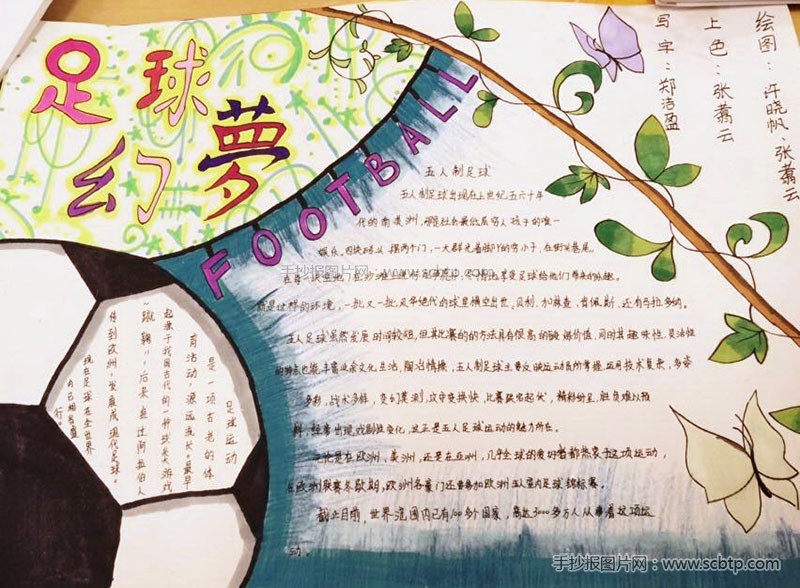 足球
幻夢
FOOTBALL
绘图：许晓帆、张翥云
上色：张翥云
写字：郑洁盈
五人制足球
五人制足球出现在上世纪五六十年
代的南美洲，
娱乐，四块砖头 摆两个门，一大群光着脚丫的穷小子，在街头巷尾，
就是这样的环境，一批又一批风华绝代的球星横空出世，贝利、加林查、肯佩斯、还有马拉多纳。
五人足球虽然发展时间较短，但其比赛的的方法具有很高的锻炼价值，同时其趣味性、灵活性
的特点也能丰富业余文化生活、陶冶情操，五人制足球主要反映运动员所掌握运用技术复杂，多姿
多彩，战术多样，变幻莫测，攻守变换快，比赛跌宕起伏，精彩纷呈，胜负难以预
料，经常出现戏剧性变化，这正是五人足球运动的魅力所在。
无论是在欧洲、美洲，还是在亚洲，几乎全球的爱好者都热衷于这项运动，
在欧洲联赛冬歇期，欧洲各豪门还要参加欧洲五人室内足球锦标赛。
截止目前，世界范围内已有100多个国家，高达3000多万人从事着这项运
动。
足球运动
是一项古老的体
育活动，源远流长。最早
起源于我国古代的一种球类游戏
“蹴鞠”，后来经过阿拉伯人
传到欧洲，发展成现代足球。
现在足球在全世界
内已相当盛
行。
手抄报图片网：www.scbtp.com
手抄报图片网：www.scbtp.com